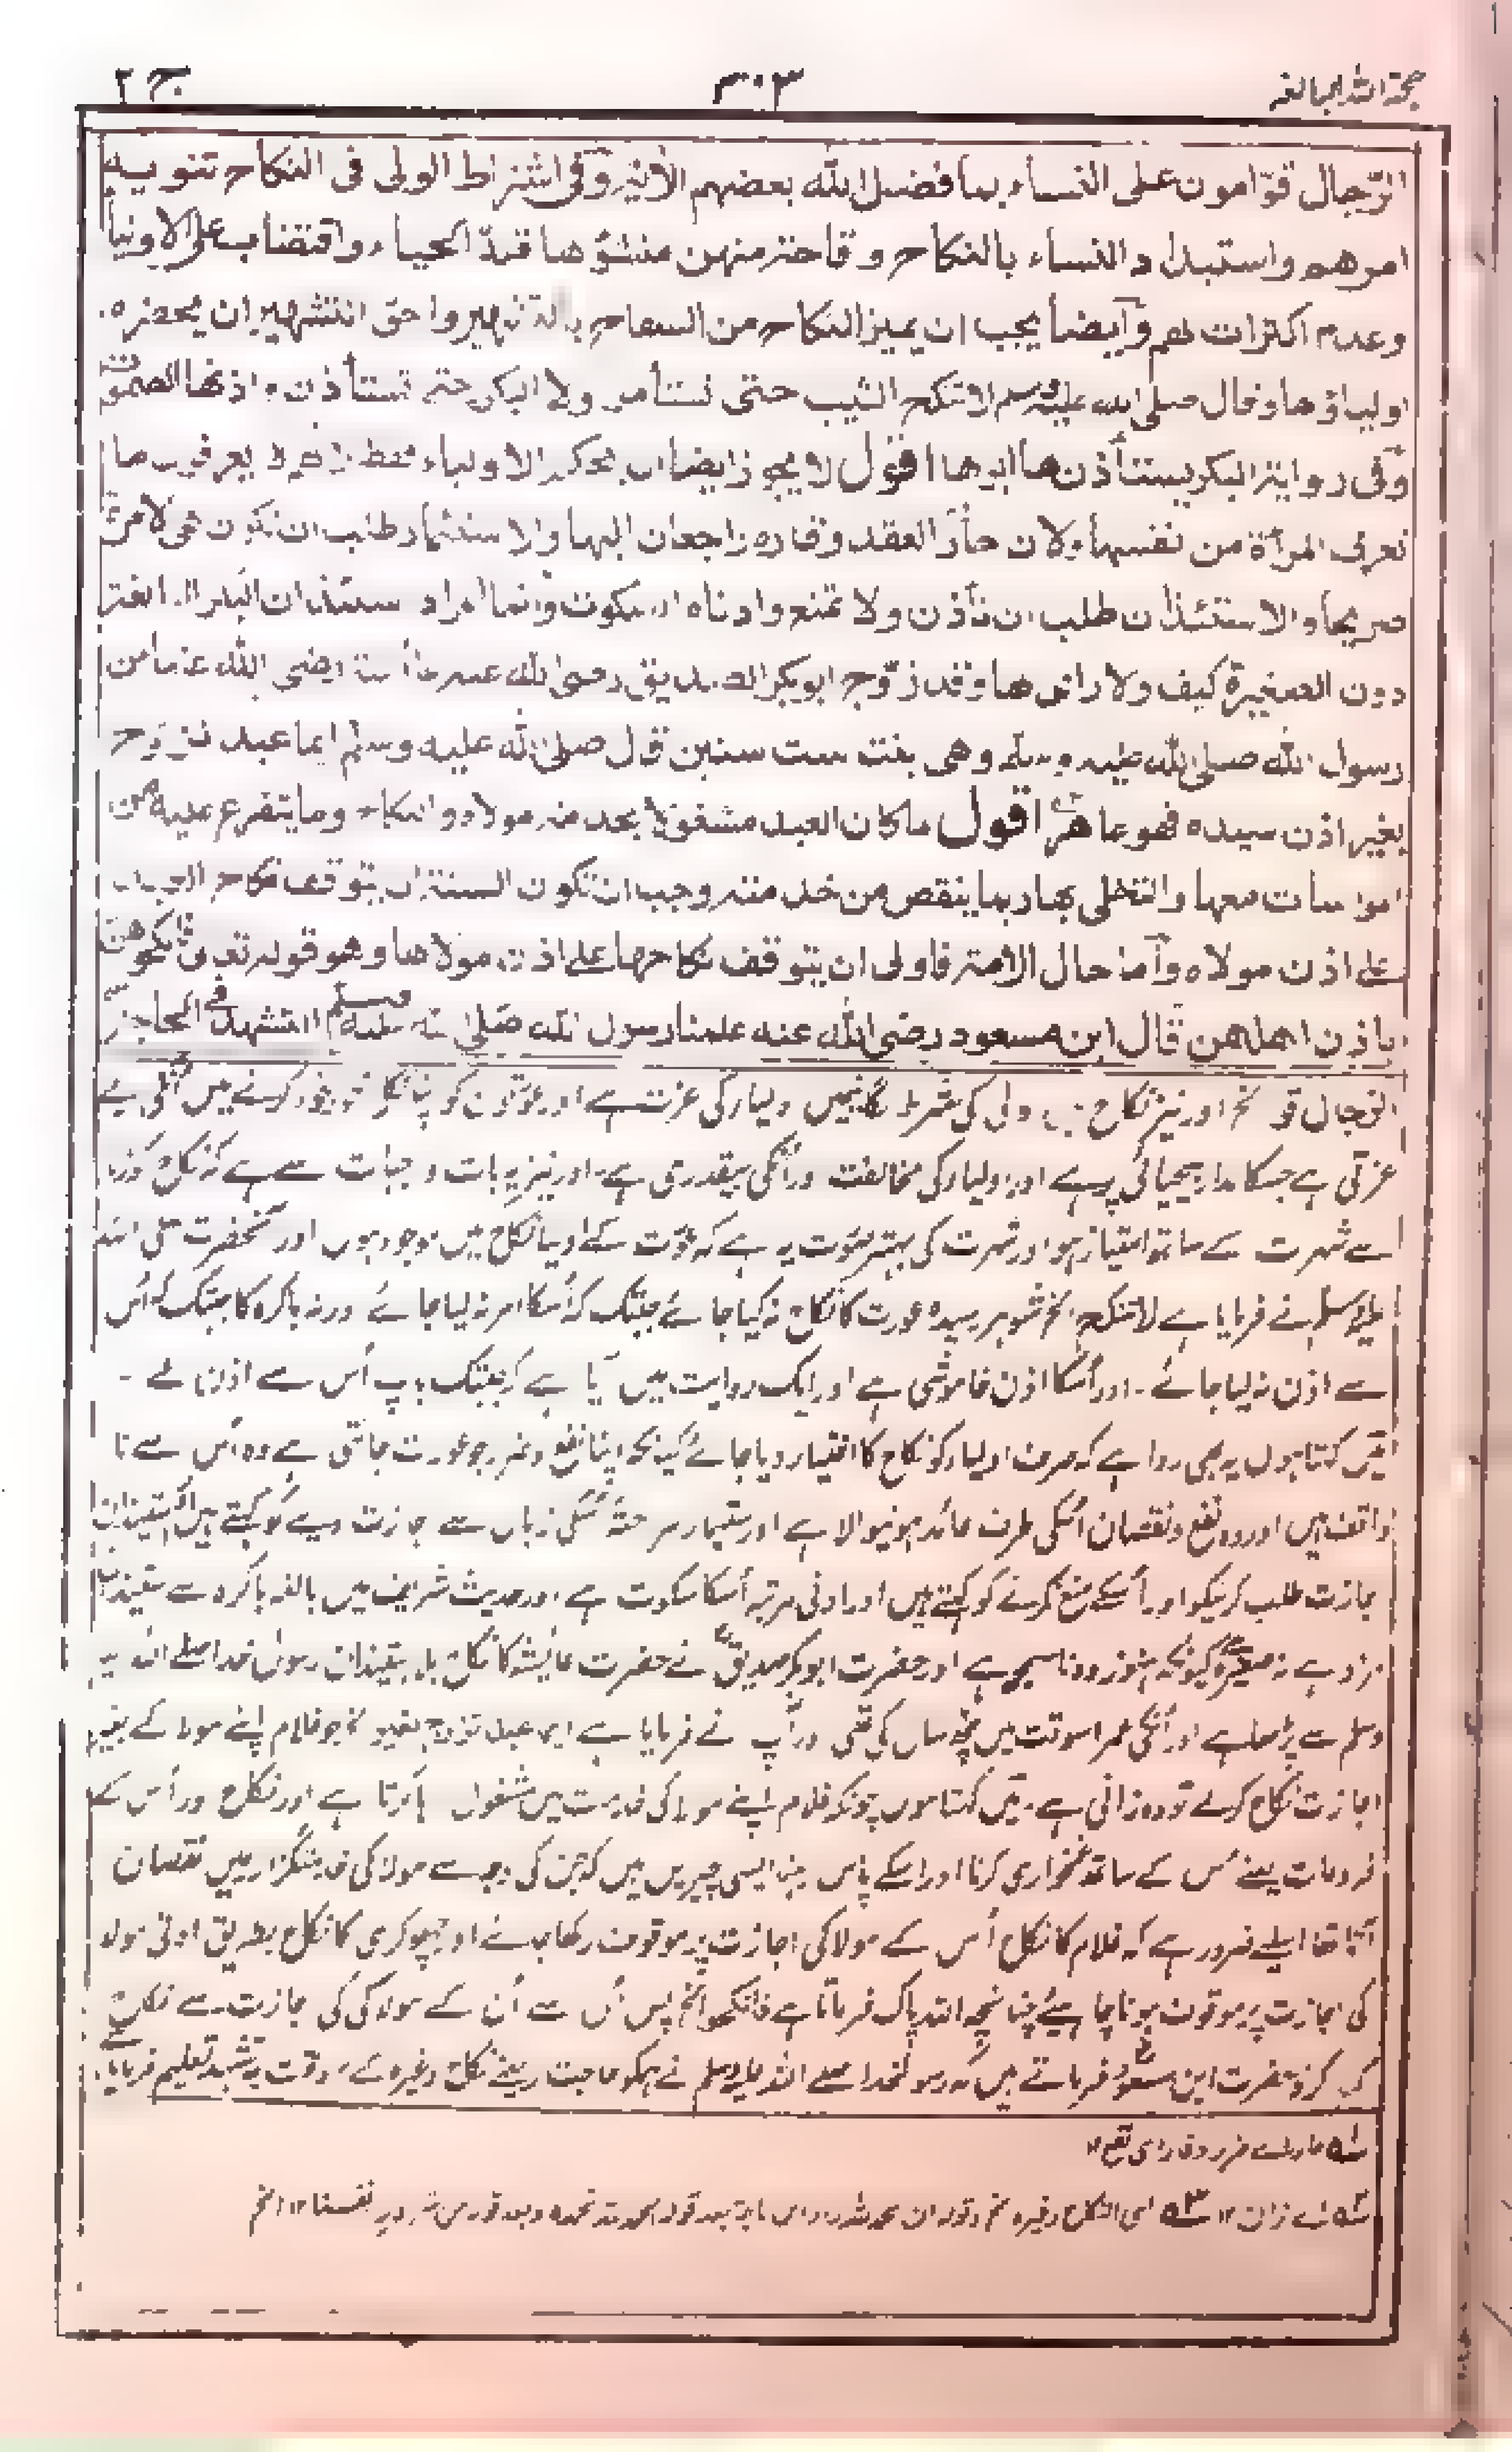 حجة الله البالغہ ٣٠٣ ج ٢
الرّجال قوّامون على النساء بما فضل الله بعضهم الأية وفى اشتراط الولى فى النكاح تنويه
امرهم واستبداد النساء بالنكاح وقاحة منهن منشؤها قلة الحياء واقتضاب على الاولياء
وعدم اكتراث لهم وآيضا يجب ان يميز النكاح من السفاح بالتشهير واحق التشهير ان يحضره
اولياؤها وقال صلى الله عليه وسلم لا تنكح الثيب حتى تستأمر ولا البكر حتى تستأذن واذنها الصموت
وفى رواية البكر يستأذنها ابوها اقول لا يجوز ايضا ان يحكم الاولياء فقط لانهم لا يعرفون ما
تعرف المرأة من نفسها ولان حارّ العقد وقاره راجعان اليها والاستئمار طلب ان تكون هى الامرة
صريحا والاستئذان طلب ان تأذن ولا تمنع وادناه السكوت وانما المراد استئذان البكر البالغة
دون الصغيرة كيف ولا رأى لها وقد زوّج ابوبكر الصديق رضى الله عنه عائشة رضى الله عنها من
رسول الله صلى الله عليه وسلم وهى بنت ست سنين قول صلى الله عليه وسلم ايما عبد تزوج
بغير اذن سيده فهو عاهر اقول لما كان العبد مشغولا بخدمة مولاه والنكاح وما يتفرع عليه من
المواساة معها والتخلى بها ربما ينقص من خدمته وجب ان تكون السنة ان يتوقف نكاح العبد
على اذن مولاه وآما حال الامة فاولى ان يتوقف نكاحها على اذن مولاها وهو قوله تعالى فانكحوهن
باذن اهلهن قال ابن مسعود رضى الله عنه علمنا رسول الله صلى الله عليه وسلم التشهد فى الحاجة
الرجال قو الخ اور نیز نکاح میں ولی کی شرط لگانیمیں اولیار کی عزت ہے اور عورتوں کو اپنا نکاح خود بخود کرنے میں
عزتی ہے جسکا مدار بیحیائی پر ہے اور اولیار کی مخالفت اور انکی بیقدری ہے۔ اور نیز یہ بات واجبات سے ہے کہ نکاح کو زنا
سے شہرت کے ساتھ امتیاز ہو اور شہرت کی بہتر صورت یہ ہے کہ عورت کے اولیا نکاح میں موجود ہوں اور آنحضرت صلی اللہ
علیہ وسلم نے فرمایا ہے لاتنکح الخ شوہر رسیدہ عورت کا نکاح نہ کیا جائے جبتک کہ اُسکا امر نہ لیا جائے اور نہ باکرہ کا جبتک کہ اُس
سے اذن نہ لیا جائے۔ اور اُسکا اذن خاموشی ہے اور ایک روایت میں آیا ہے کہ جبتک باپ اُس سے اذن نہ لے۔
میں کہتا ہوں یہ بھی روا ہے کہ صرف اولیار کو نکاح کا اختیار دیا جائے کیونکہ اپنا نفع و ضرر جو عورت جانتی ہے وہ اُس سے نا
واقف ہیں اور وہ نفع و نقصان اُسکی طرف عائد ہونیوالا ہے اور استیمار صراحۃً اُسکی زبان سے اجازت لینے کو کہتے ہیں استیذان
اجازت طلب کرنیکو اور اُسکے منع نکرنے کو کہتے ہیں اور ادنی مرتبہ اُسکا سکوت ہے اور حدیث شریف میں بالغہ باکرہ سے استیذان
مراد ہے نہ صغیرہ کیونکہ ہنوز وہ ناسمجھ ہے اور حضرت ابوبکر صدیقؓ نے حضرت عایشہ کا نکاح بلا استیذان رسول خدا صلے اللہ علیہ
وسلم سے پڑھا ہے اور اُنکی عمر اسوقت میں چھ سال کی تھی اور آپ نے فرمایا ہے ایما عبد تزوج بغیر الخ جو غلام اپنے مولا کے بغیر
اجازت نکاح کرے تو وہ زانی ہے۔ میں کہتا ہوں چونکہ غلام اپنے مولا کی خدمت میں مشغول رہا کرتا ہے اور نکاح اور اُس کے
فروعات یعنے اُس کے ساتھ غمخواری کرنا اور اسکے پاس رہنا ایسی چیزیں ہیں کہ جن کی وجہ سے مولا کی خدمتگزاری میں نقصان
آتا تھا اسلیے ضرور ہے کہ غلام کا نکاح اُس کے مولا کی اجازت پر موقوف رکھا جائے اور چھوکری کا نکاح بطریق اولی مولا
کی اجازت پر موقوف ہونا چاہیئے چنانچہ اللہ پاک فرماتا ہے فانکحوا الخ پس اُن سے اُن کے مولا کی اجازت سے نکاح
کیا کرو حضرت ابن مسعودؓ فرماتے ہیں کہ رسولخدا صلے اللہ علیہ وسلم نے ہمکو حاجت یعنے نکاح وغیرہ کے وقت یہ تشہد تعلیم فرمایا
حار اے ضرر وقار اى نفع ١٢
اے زان ١٢ اى النکاح وغیرہ